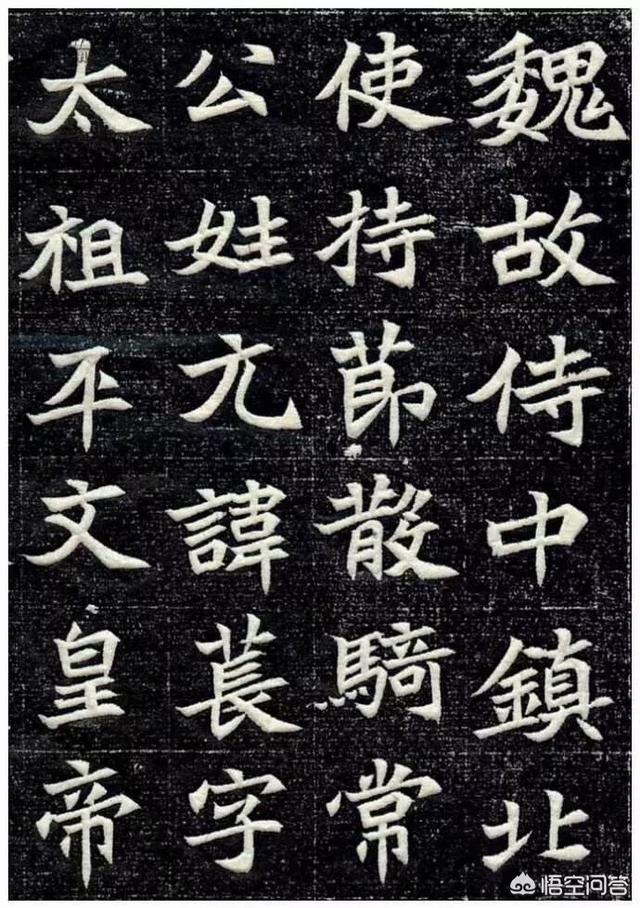 魏故侍中鎮北
使持莭散騎常
公姓元諱萇字
太祖平文皇帝
悟空问答